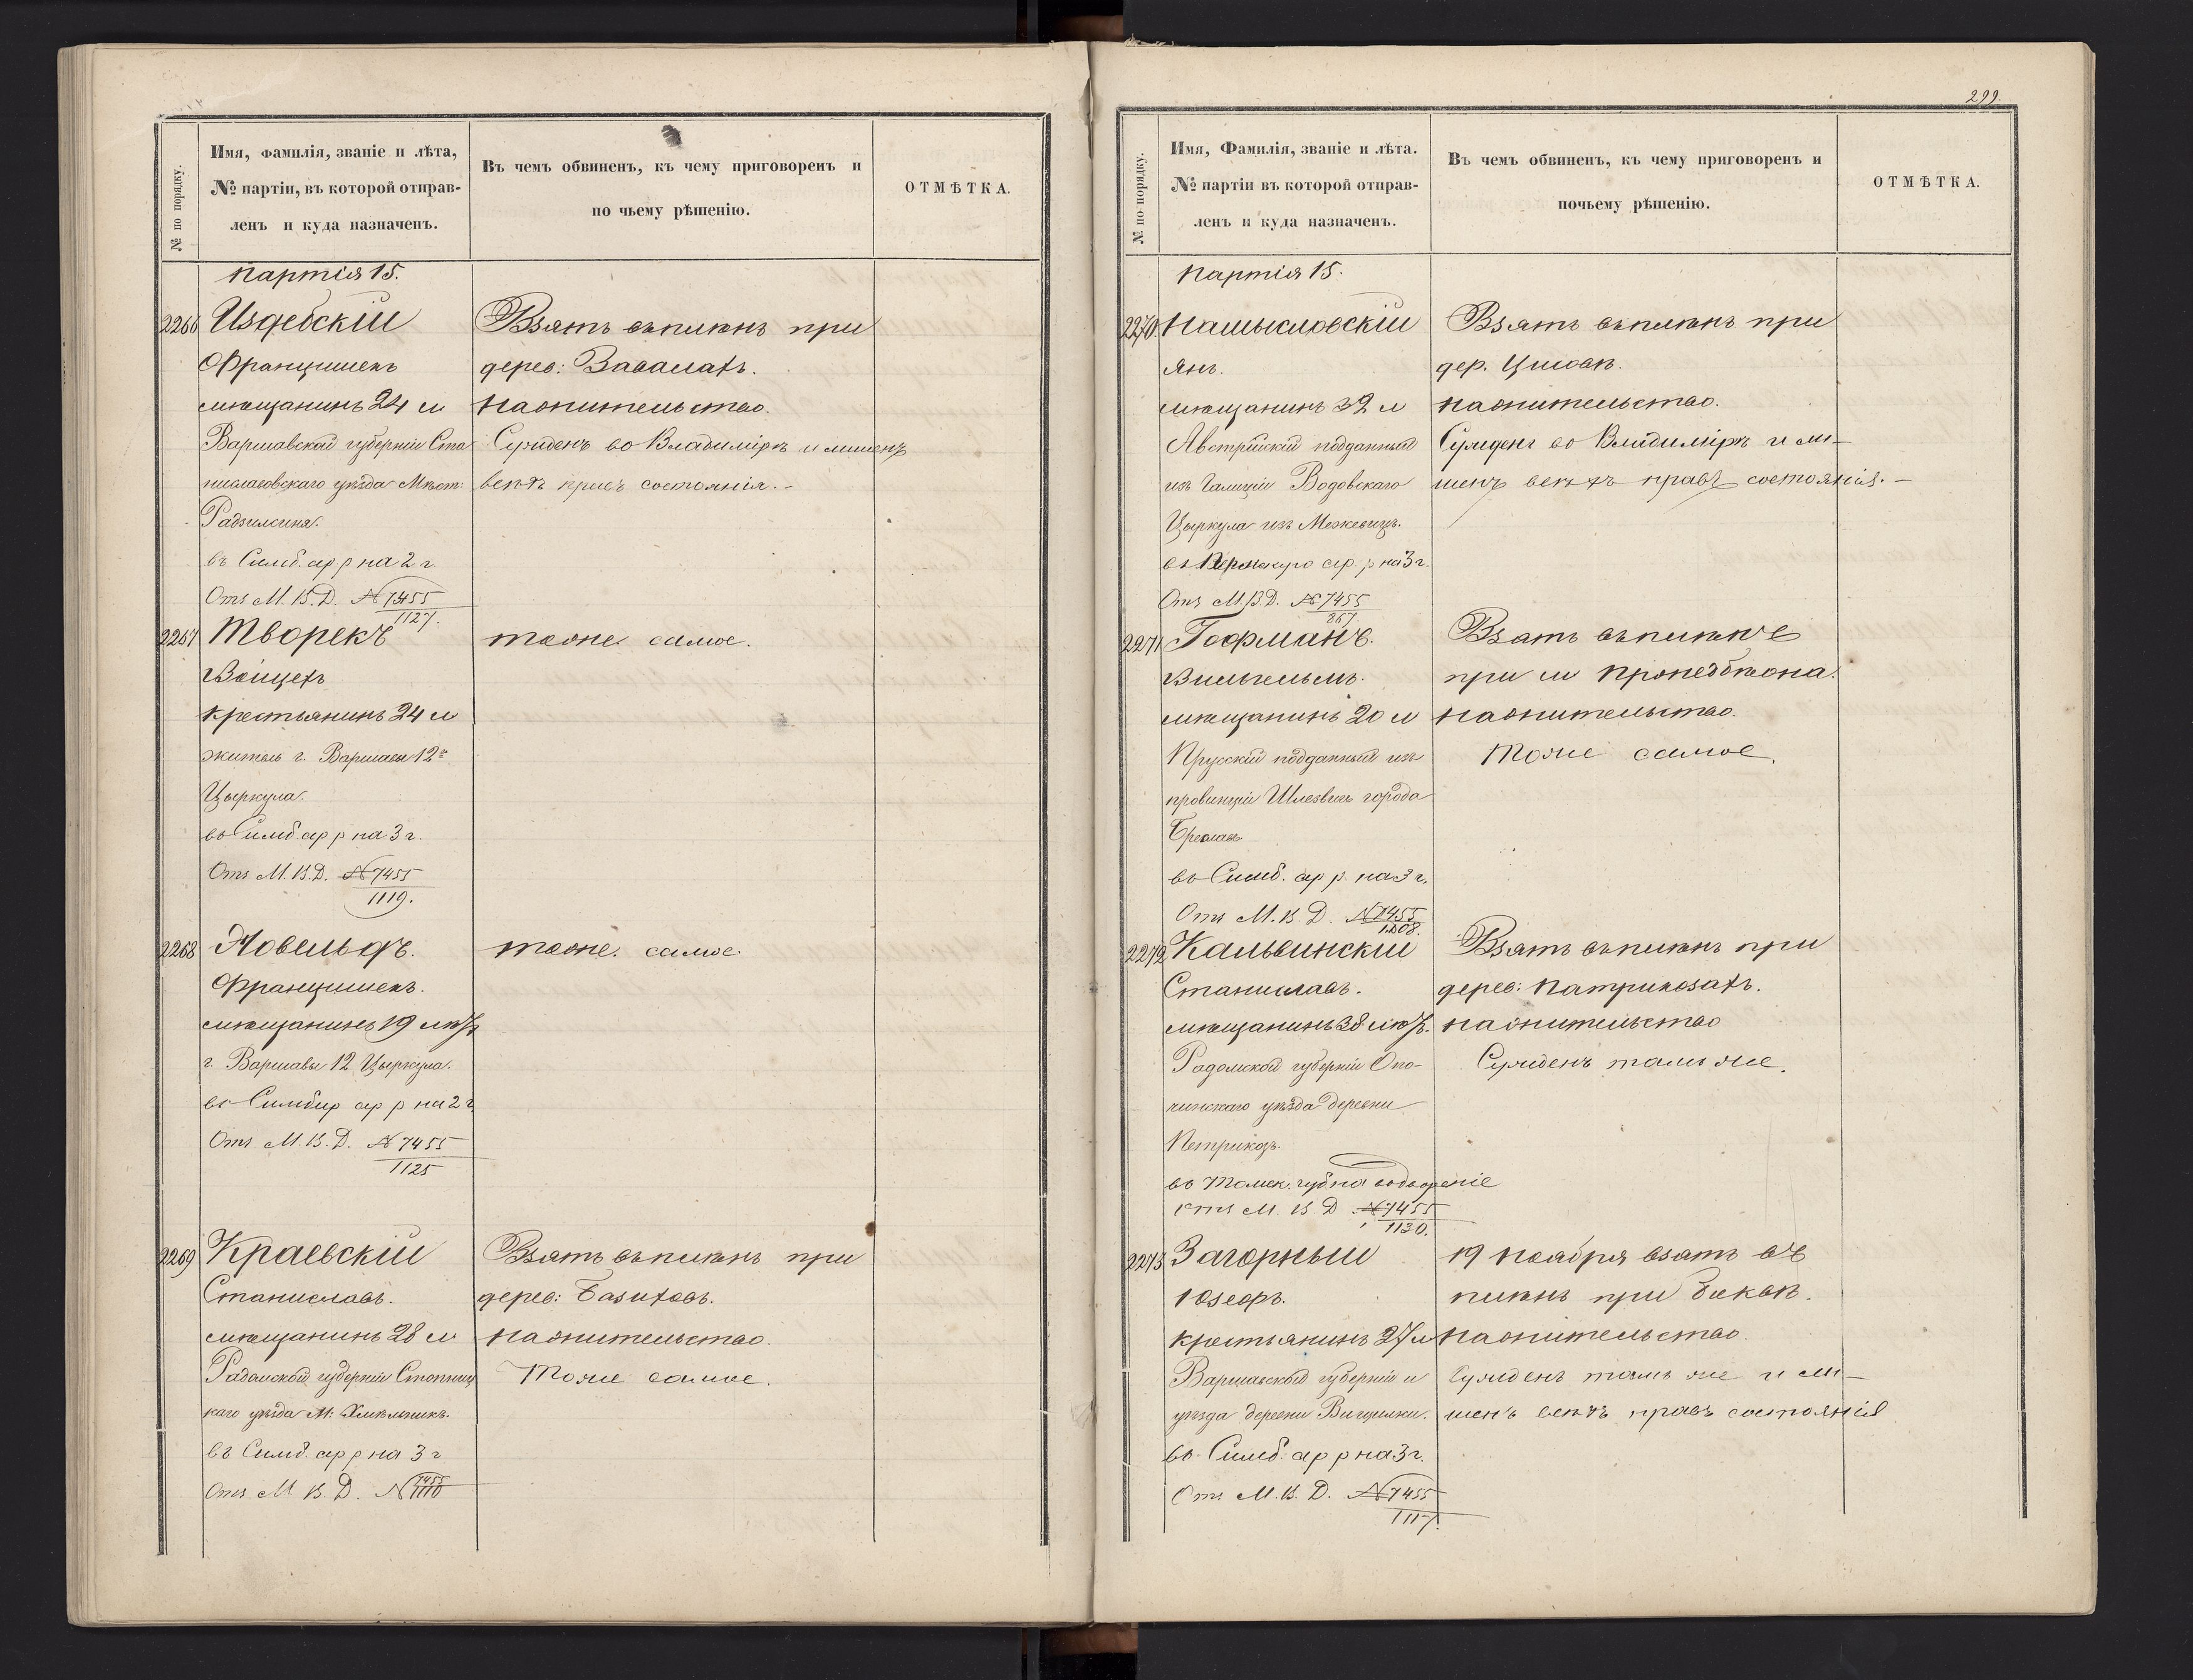 № по порядку.
Имя, Фамилія, званіе и лѣта,
№ партіи, въ которой отправ-
ленъ и куда назначенъ.
Въ чемъ обвиненъ, къ чему приговоренъ и
по чьему рѣшенію.
ОТМѢТКА.
Партія 15.
2266 Издебскій
Францишекъ
мѣщанинъ 24 л
Варшавской губерніи Ста
ниславовскаго уѣзда Мѣст:
въ Симб. ар р на 2 г
Отъ М. В. Д. № 7455
1127.
Взятъ въ плѣнъ при
дерев:
На жительство.
Сужденъ во Владимірѣ и лишенъ
всѣхъ правъ состоянія. -
2267 Творекъ
Войцехъ
крестьянинъ 24 л
житель г. Варшавы 12го
Цыркула.
въ Симб. ар р на 3 г.
Отъ М. В. Д. № 7455
1119.
тоже самое.
2268
Францишекъ.
мѣщанинъ 19 лѣтъ
г. Варшавы 12 Цыркула.
въ Симбир ар р на 2 г
Отъ М. В. Д. № 7455
1125
тоже самое.
2269 Краевскій
Станиславъ.
мѣщанинъ 28 л
Радомской губерніи Стопниц
каго уѣзда М: Хмѣльникъ.
въ Симб. ар р на 3 г
Отъ М. В. Д. № 7455
1110
Взятъ въ плѣнъ при
дерев:
На жительство.
Тоже самое.
299.
№ по порядку.
Имя, Фамилія, званіе и лѣта.
№ партіи въ которой отправ-
ленъ и куда назначенъ.
Въ чемъ обвиненъ, къ чему приговоренъ и
почьему рѣшенію.
ОТМѢТКА.
Партія 15.
2270. Намысловскій
Янъ.
мѣщанинъ 32 л
Австрійскій подданный
изъ Галиціи Водовскаго
Цыркула изъ
въ ар. р на 3 г.
Отъ М. В. Д. № 7455
867
Взятъ въ плѣнъ при
дер.
На жительство.
Сужденъ во Владимірѣ и ли-
шенъ всѣхъ правъ состоянія. -
2271 Гофманъ.
Вильгельмъ.
мѣщанинъ 20 л
Прусскій подданный изъ
провинціи Шлезвигъ города
въ Симб. ар р. на 3 г.
Отъ М. В. Д. № 7455
1008.
Взятъ въ плѣнъ
при м
На жительство.
Тоже самое.
2272 Кальвинскій
Станиславъ.
мѣщанинъ 38 лѣтъ.
Радомской губерніи Опо-
чинскаго уѣзда деревни
Петрикозъ.
въ Томск. губ на водвореніе
Отъ М. В. Д № 7455
1130.
Взятъ въ плѣнъ при
дерев: Патрикозахъ.
На жительство
Сужденъ тамъ же.
2273 Загорный
Юзефъ.
крестьянинъ 27 л
Варшавской губерніи и
уѣзда деревни
въ Симб. ар р на 3 г.
Отъ М. В. Д. № 7455
1117.
19 ноября взятъ въ
плѣнъ при
На жительство.
Сужденъ тамъ же и ли-
шенъ всѣхъ правъ состоянія